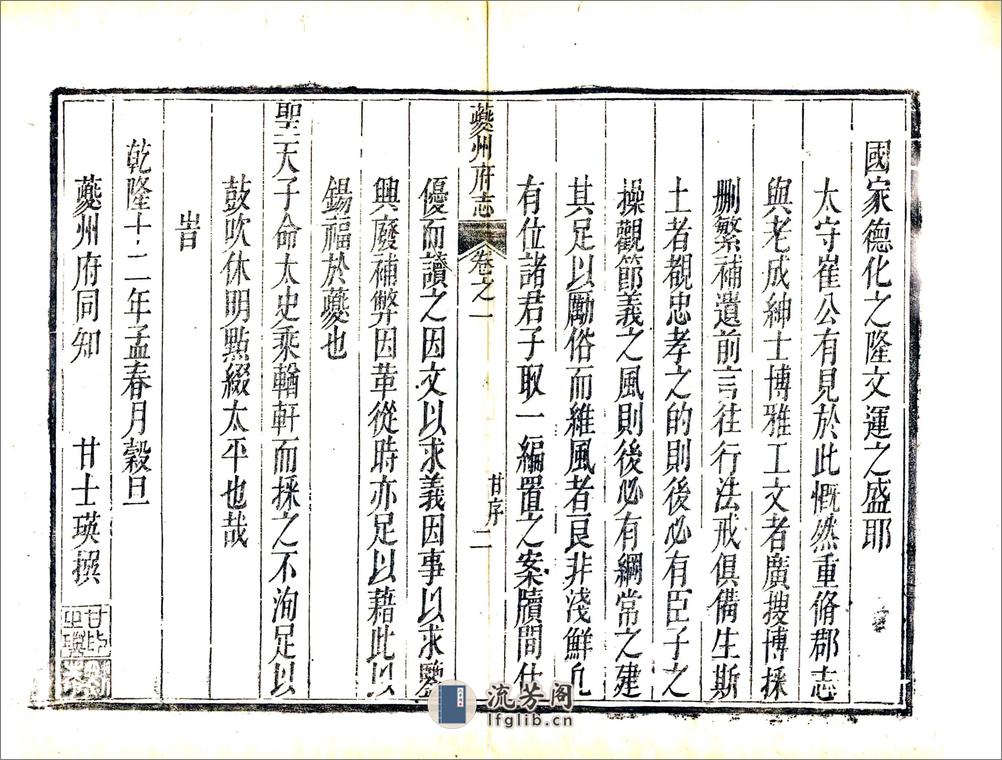 國家德化之隆文運之盛耶
太守崔公有見於此慨然重脩郡志
與老成紳士博雅工文者廣搜博採
删繁補遺前言往行法戒俱備生斯
土者觀忠孝之的則後必有臣子之
操觀節義之風則後必有綱常之建
其足以勵俗而維風者良非淺鮮凢
有位諸君子取一編置之案牘間仕
夔州府志 卷之一 甘序 二
優而讀之因文以求義因事以求鑒
興廢補弊因革從時亦足以藉此以
錫福於夔也
聖天子命太史乘輶軒而採之不洵足以
鼓吹休明點綴太平也哉
旹
乾隆十二年孟春月穀旦
夔州府同知 甘士瑛撰
流芳阁
lfglib.cn